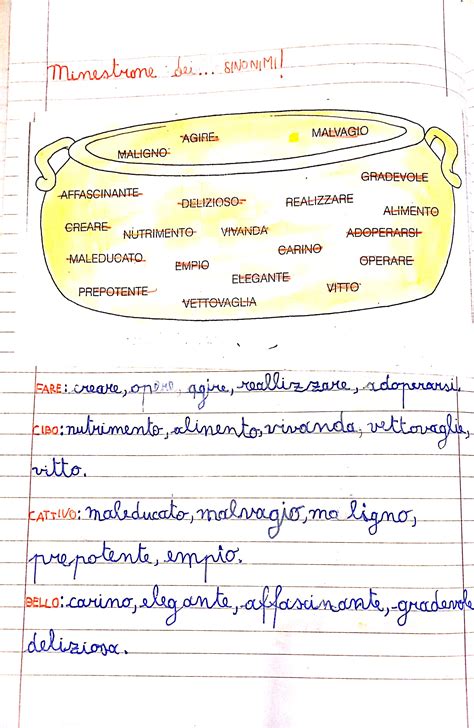 Minestrone dei... SINONIMI!
AGIRE
MALVAGIO
MALIGNO
GRADEVOLE
AFFASCINANTE
DELIZIOSO
REALIZZARE
ALIMENTO
CREARE
NUTRIMENTO
VIVANDA
ADOPERARSI
CARINO
MALEDUCATO
EMPIO
OPERARE
ELEGANTE
PREPOTENTE
VITTO
VETTOVAGLIA
FARE: creare, agire, reallizzare, adoperarsi.
CIBO: nutrimento, alinento, vivanda, vettovaglie,
vitto.
CATTIVO: maleducato, malvagio, ma ligno,
prepotente, empio.
BELLO: carino, elegante, affascinante, gradevole
deliziosa.